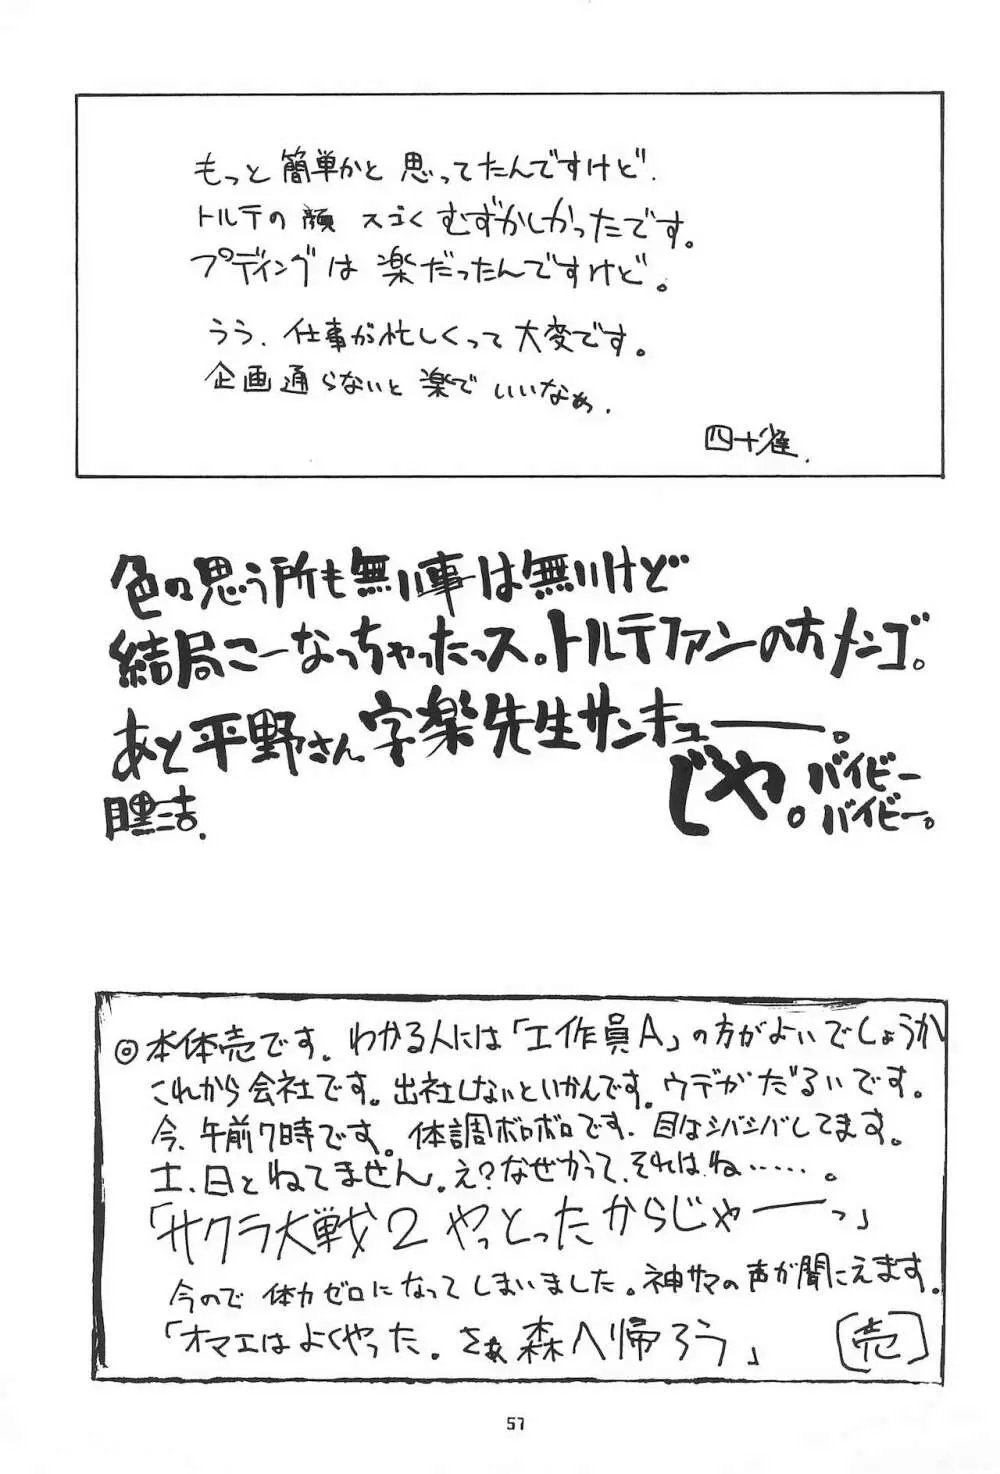 もっと簡単かと思ってたんですけど.
トルテの顔 スゴくむずかしかったです。
プディングは楽だったんですけど。
うう、仕事が忙しくって大変です。
企画通らないと楽でいいなぁ.
四十雀.
色々思う所も無い事は無いけど
結局こーなっちゃったっス。トルテファンの方メンゴ。
あと平野さん字楽先生サンキューー。
じゃ。バイビー
バイビー。
◎本体売です。わかる人には「工作員A」の方がよいでしょうか
これから会社です。出社しないといかんです。ウデがだるいです。
今、午前7時です。体調ボロボロです、目はシバシバしてます。
土、日とねてません。え?なぜかって、それは、ね……。
「サクラ大戦2やっとったからじゃーーっ」
今ので体力ゼロになってしまいました。神サマの声が聞こえます。
「オマエはよくやった。さぁ森へ帰ろう」
〔売〕
57